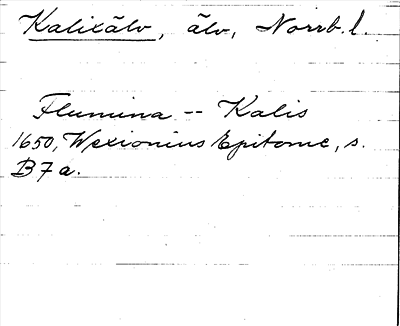 Kalixälv, älv, Norrb. l.
Flumina -- Kalis
1650, Wexionius Epitome, s.
B7a.